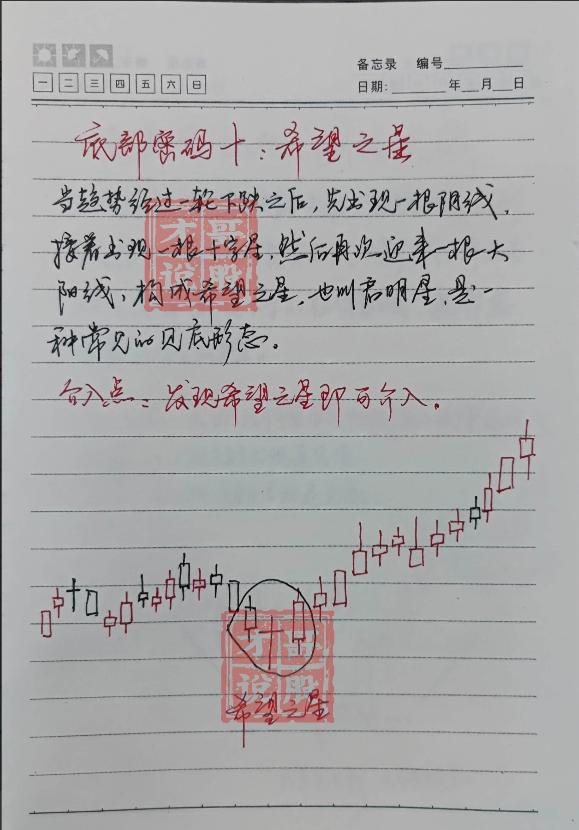 备忘录 编号
一 二 三 四 五 六 日
日期: 年 月 日
底部密码十：希望之星
当趋势经过一轮下跌之后，先出现一根阴线，
接着出现一根十字星，然后再次迎来一根大
阳线，构成希望之星，也叫启明星，是一
种常见的见底形态。
介入点：发现希望之星即可介入。
才哥
说股
才哥
说股
希望之星